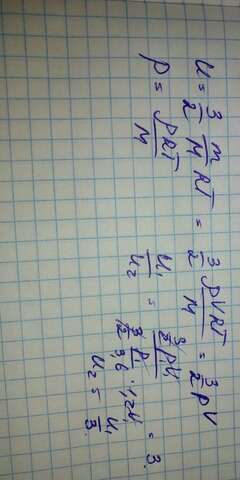 U = 3/2 m/M RT = 3/2 ρVRT/M = 3/2 pV
p = ρRT/M
U₁/U₂ = (3/2 pV)/(3/2 p/3,6 · 1,2V) = 3.
U₂ = U₁/3.